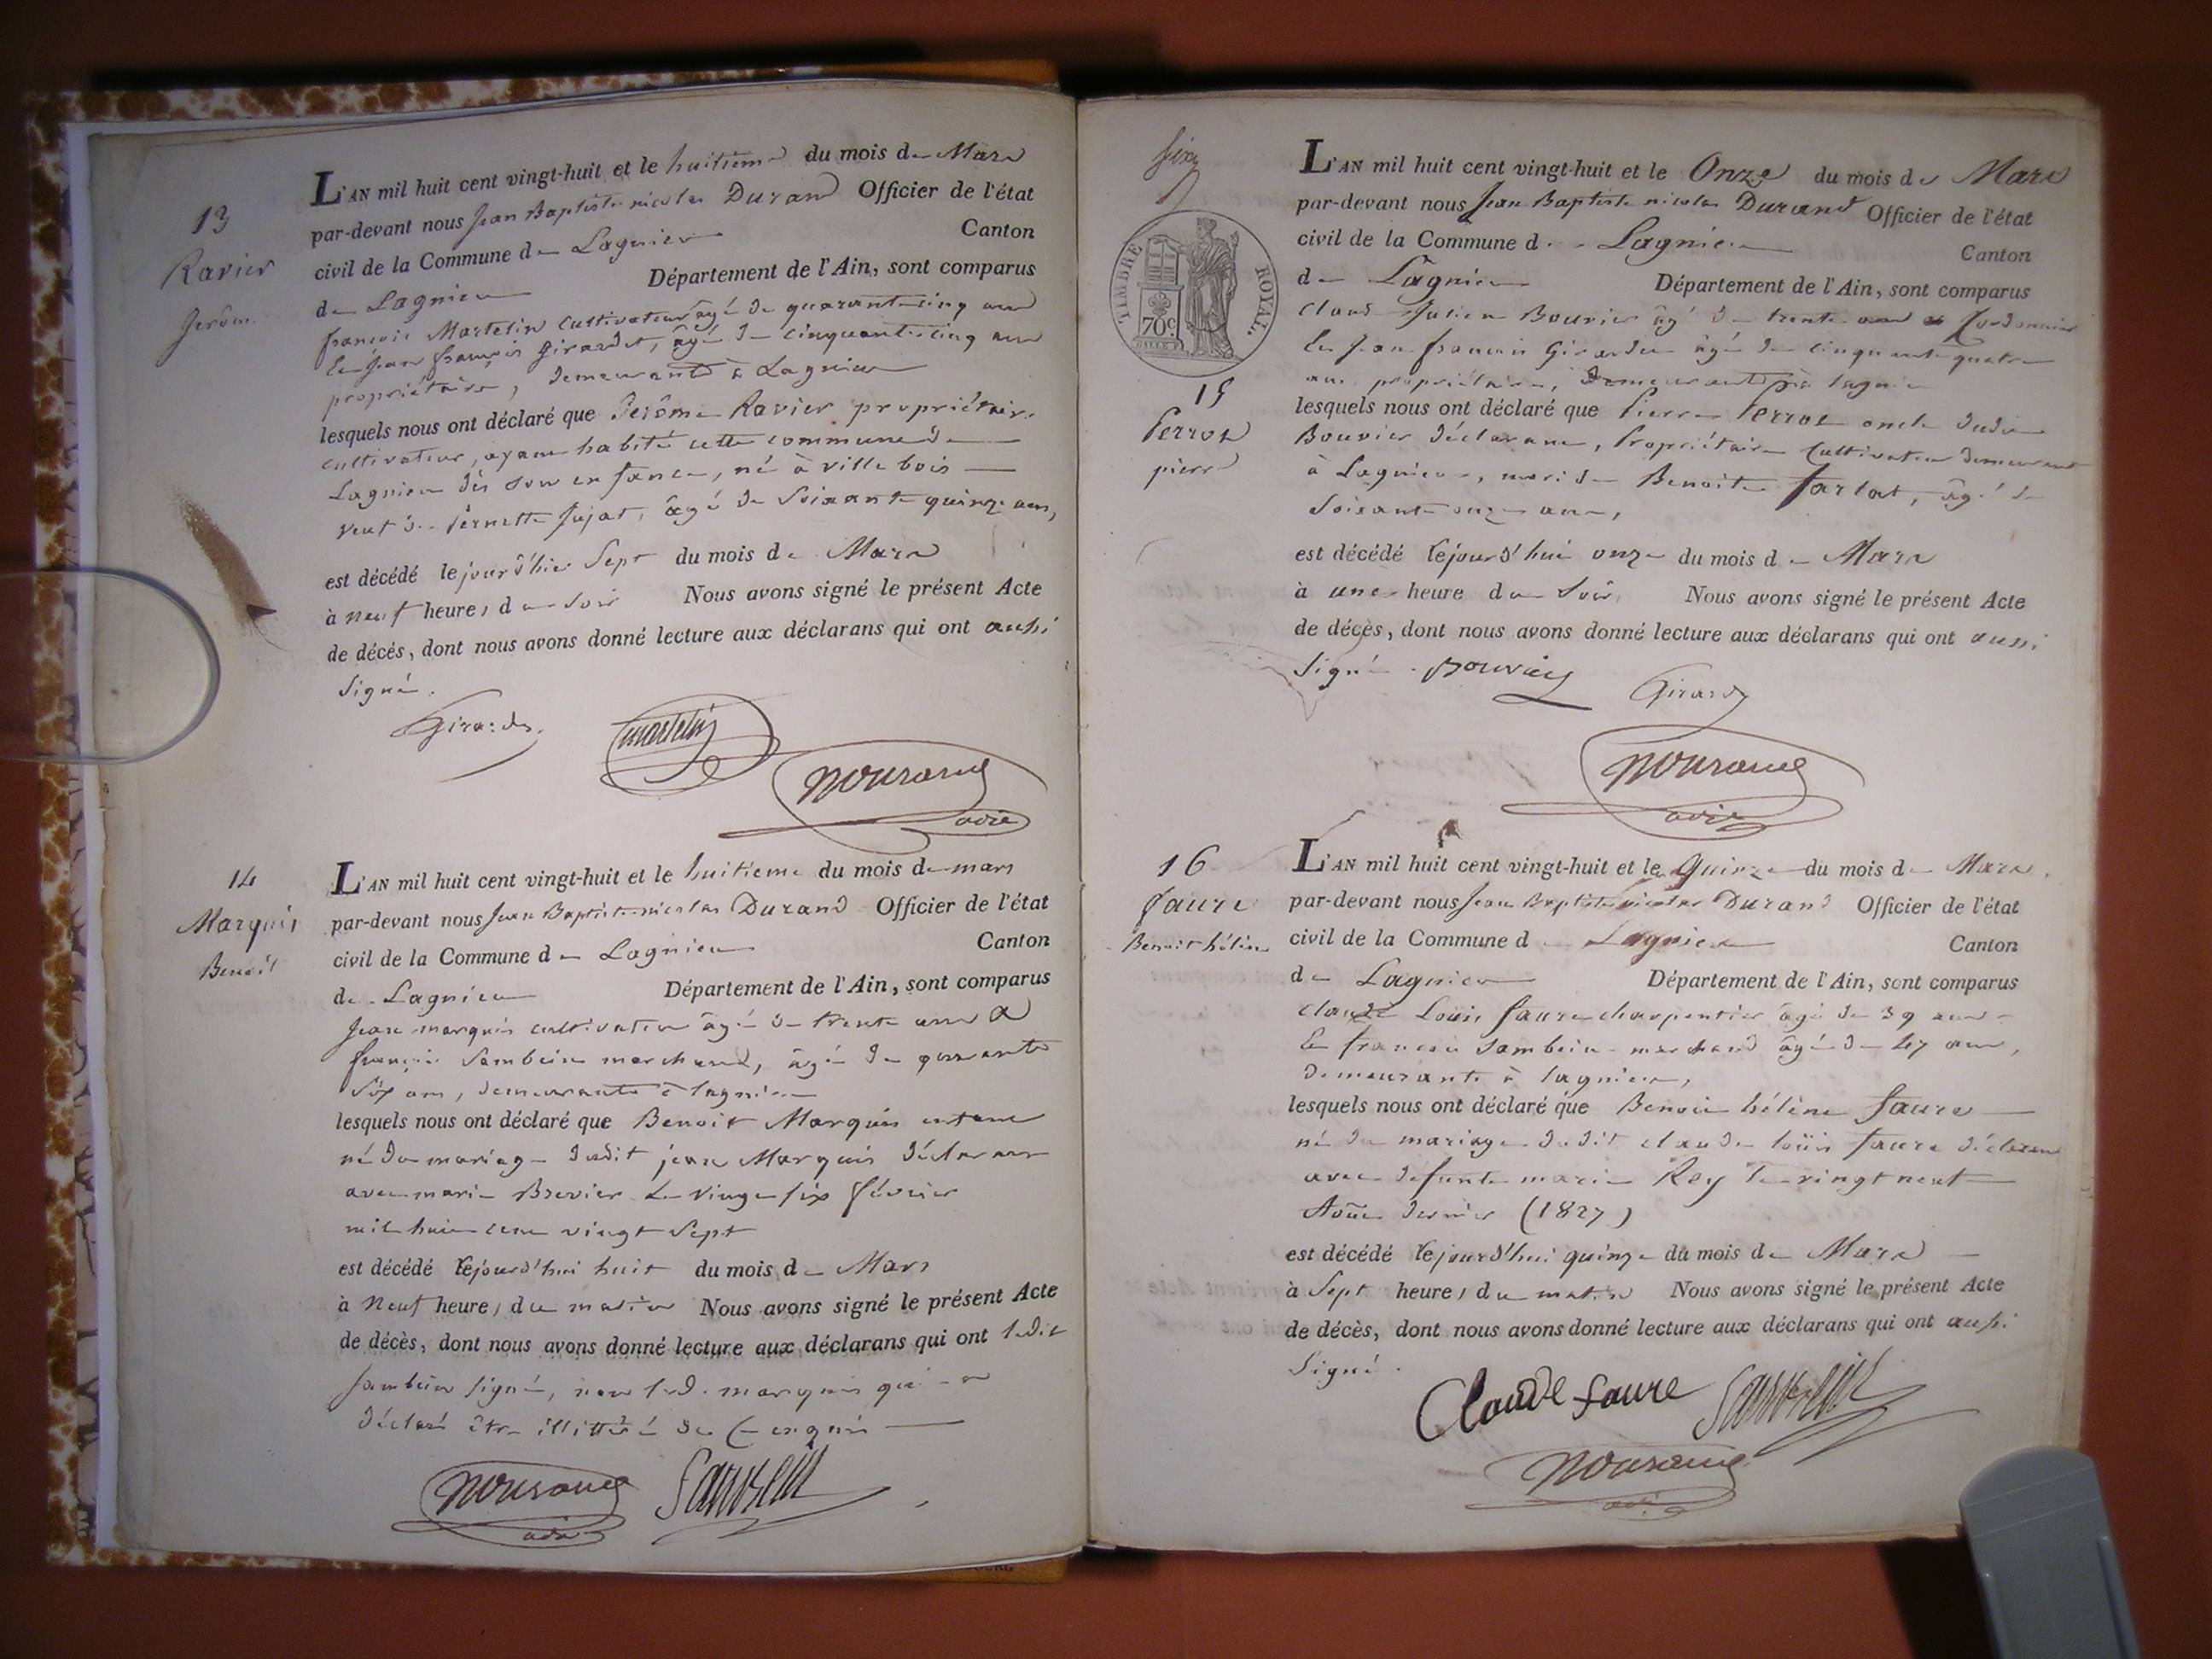 13
Ravier
Jerôm.
L'AN mil huit cent vingt-huit et le huitième du mois de Mars
par-devant nous Jean Baptiste nicolas Durand Officier de l'état
civil de la Commune de Lagnieu Canton
de Lagnieu Département de l'Ain, sont comparus
françois Martelin cultivateur âgé de quarante cinq ans
Et jean françois Girardet, âgé de cinquante cinq ans
propriétaire, demeurants à Lagnieu
lesquels nous ont déclaré que Jerôme Ravier propriétaire
cultivateur, ayant habité cette commune de
Lagnieu dès son enfance, né à ville bois
veuf de Pernette Jujat, âgé de Soixante quinze ans,
est décédé le jour d'hier Sept du mois de Mars
à neuf heures du soir Nous avons signé le présent Acte
de décés, dont nous avons donné lecture aux déclarans qui ont aussi
Signé.
Girardet
martelin
NDurand
adj
14
Marquis
Benoît
L'AN mil huit cent vingt-huit et le huitieme du mois de mars
par-devant nous Jean Baptiste nicolas Durand Officier de l'état
civil de la Commune de Lagnieu Canton
de Lagnieu Département de l'Ain, sont comparus
Jean marquis cultivateur âgé de trente ans &
françois Sambein marchand, âgé de quarante
six ans, demeurants à lagnieu
lesquels nous ont déclaré que Benoit Marquis enfant
né du mariage dudit jean Marquis déclarant
avec marie Brevier le vingt six février
mil huit cent vingt Sept
est décédé le jourd'hui huit du mois de Mars
à Neuf heures du matin Nous avons signé le présent Acte
de décès, dont nous avons donné lecture aux déclarans qui ont ledit
Sambein signé, non led. marquis qui a
déclaré être illittéré de ce enquis
NDurand
adj
Sambein
15
Perrot
pierre
TIMBRE ROYAL.
70c
L'AN mil huit cent vingt-huit et le Onze du mois de Mars
par-devant nous Jean Baptiste nicolas Durand Officier de l'état
civil de la Commune de Lagnieu Canton
de Lagnieu Département de l'Ain, sont comparus
Claude Julien Bouvier âgé de trente ans Cordonnier
Et Jean françois Girardet âgé de cinquante quatre
ans propriétaire, demeurants à lagnieu
lesquels nous ont déclaré que Pierre Perrot oncle dudit
Bouvier déclarant, Propriétaire Cultivateur demeurant
à Lagnieu, mari de Benoite Tarlat, âgé de
Soixante onze ans,
est décédé le jourd'hui onze du mois de Mars
à une heure du Soir Nous avons signé le présent Acte
de décès, dont nous avons donné lecture aux déclarans qui ont aussi
Signé. Bouvier
Girardet
NDurand
adj
16
faure
Benoit hélène
L'AN mil huit cent vingt-huit et le Quinze du mois de Mars
par-devant nous Jean Baptiste nicolas Durand Officier de l'état
civil de la Commune de Lagnieu Canton
de Lagnieu Département de l'Ain, sont comparus
claude Louis faure charpentier âgé de 39 ans
Et françois Sambein marchand âgé de 47 ans,
demeurants à lagnieu,
lesquels nous ont déclaré que Benoit hélène faure
né du mariage dudit claude loüis faure déclarant
avec defunte marie Rey le vingt neuf
Aoüt dernier (1827)
est décédé le jourd'hui quinze du mois de Mars
à Sept heures du matin Nous avons signé le présent Acte
de décès, dont nous avons donné lecture aux déclarans qui ont aussi
Signé.
Claude faure
Sambein
NDurand
adj